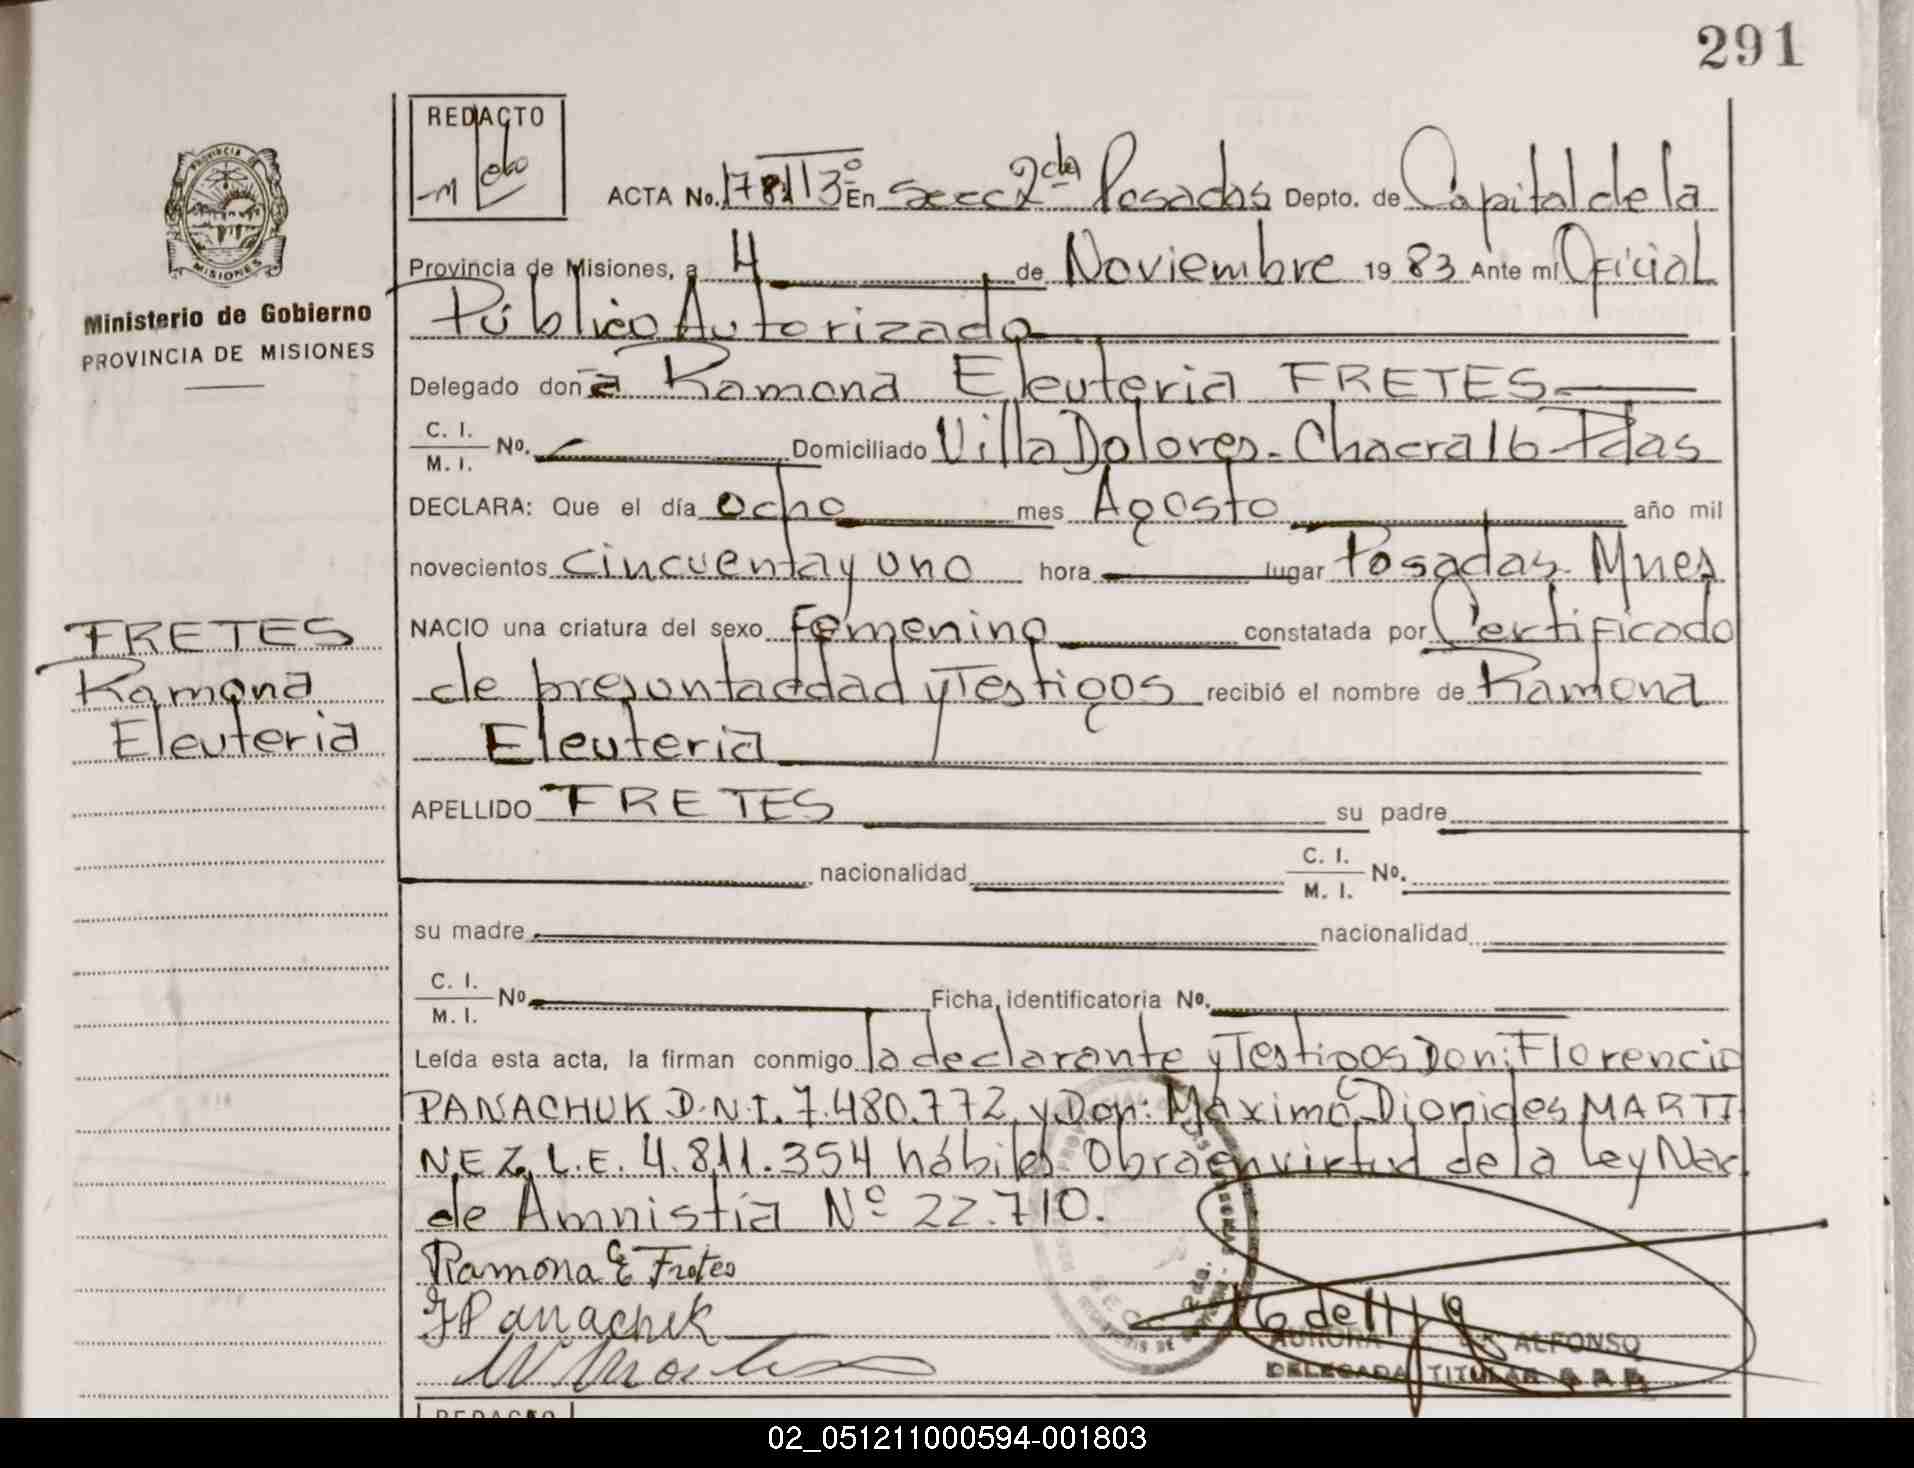 291
REDACTO
PROVINCIA DE
MISIONES
Ministerio de Gobierno
PROVINCIA DE MISIONES
ACTA No. En Secc 2da Posadas Depto. de Capital de la
Provincia de Misiones, a 4 de Noviembre 19 83 Ante mi Oficial
Público Autorizado
Delegado don a Ramona Eleuteria FRETES
C. I.
M. I. No. Domiciliado Villa Dolores - Chacra 16 - Pdas
DECLARA: Que el día ocho mes Agosto año mil
novecientos cincuenta y uno hora lugar Posadas Mnes
NACIO una criatura del sexo femenino constatada por Certificado
de y Testigos recibió el nombre de Ramona
Eleuteria
FRETES
Ramona
Eleuteria
APELLIDO FRETES su padre
nacionalidad C. I.
M. I. No.
su madre nacionalidad
C. I.
M. I. No Ficha identificatoria No.
Leída esta acta, la firman conmigo la declarante y Testigos Don: Florencio
PANACHUK D.N.I. 7.480.772 y Don: Máximo Dionides MARTI
NEZ L.E. 4.811.354 hábiles Obra en virtud de la Ley Nac.
de Amnistia Nº 22.710.
Ramona E Fretes
Panachuk
ALFONSO
DELEGADA TITULAR
REDACTO
02_051211000594-001803